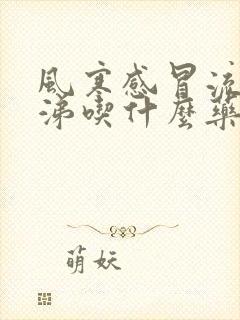 風寒感冒流
涕喫什麼藥
萌妖